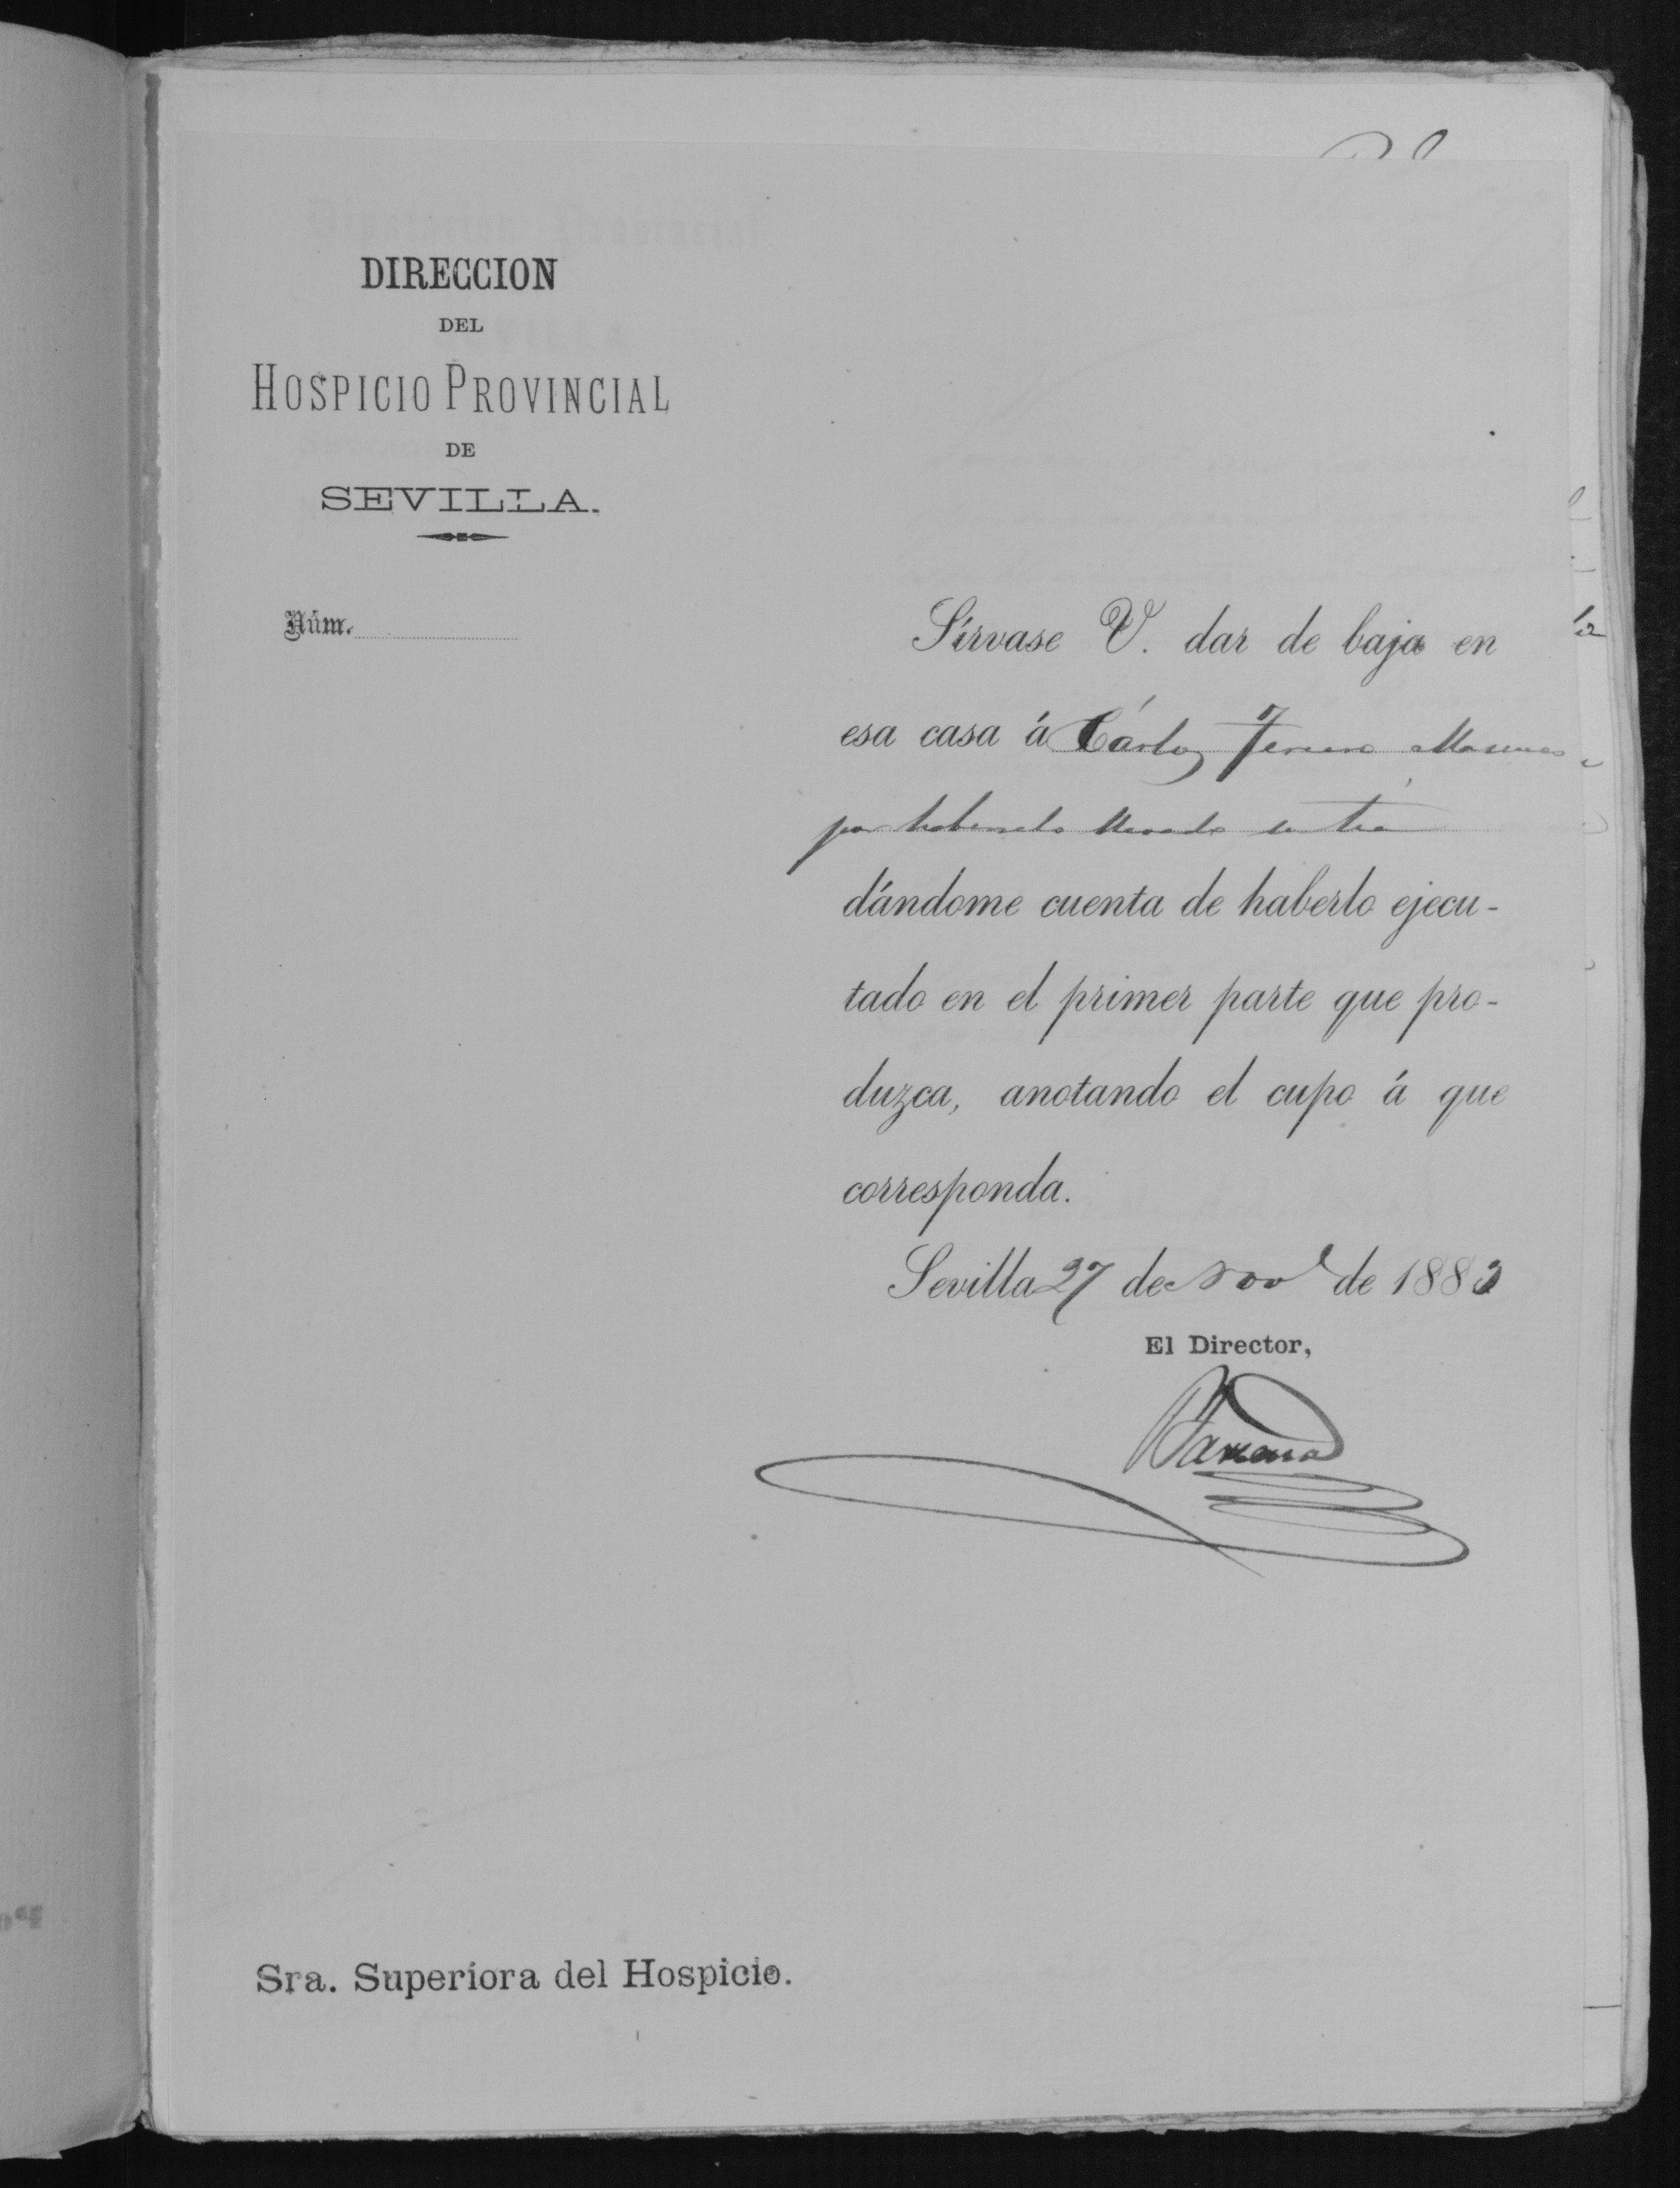 DIRECCION
DEL
HOSPICIO PROVINCIAL
DE
SEVILLA.
Núm.
Sírvase V. dar de baja en
esa casa á Cárlos
por haberselo llevado su tia
dándome cuenta de haberlo ejecu-
tado en el primer parte que pro-
duzca, anotando el cupo á que
corresponda.
Sevilla 27 de Nov^e de 1883
El Director,
Sra. Superiora del Hospicio.